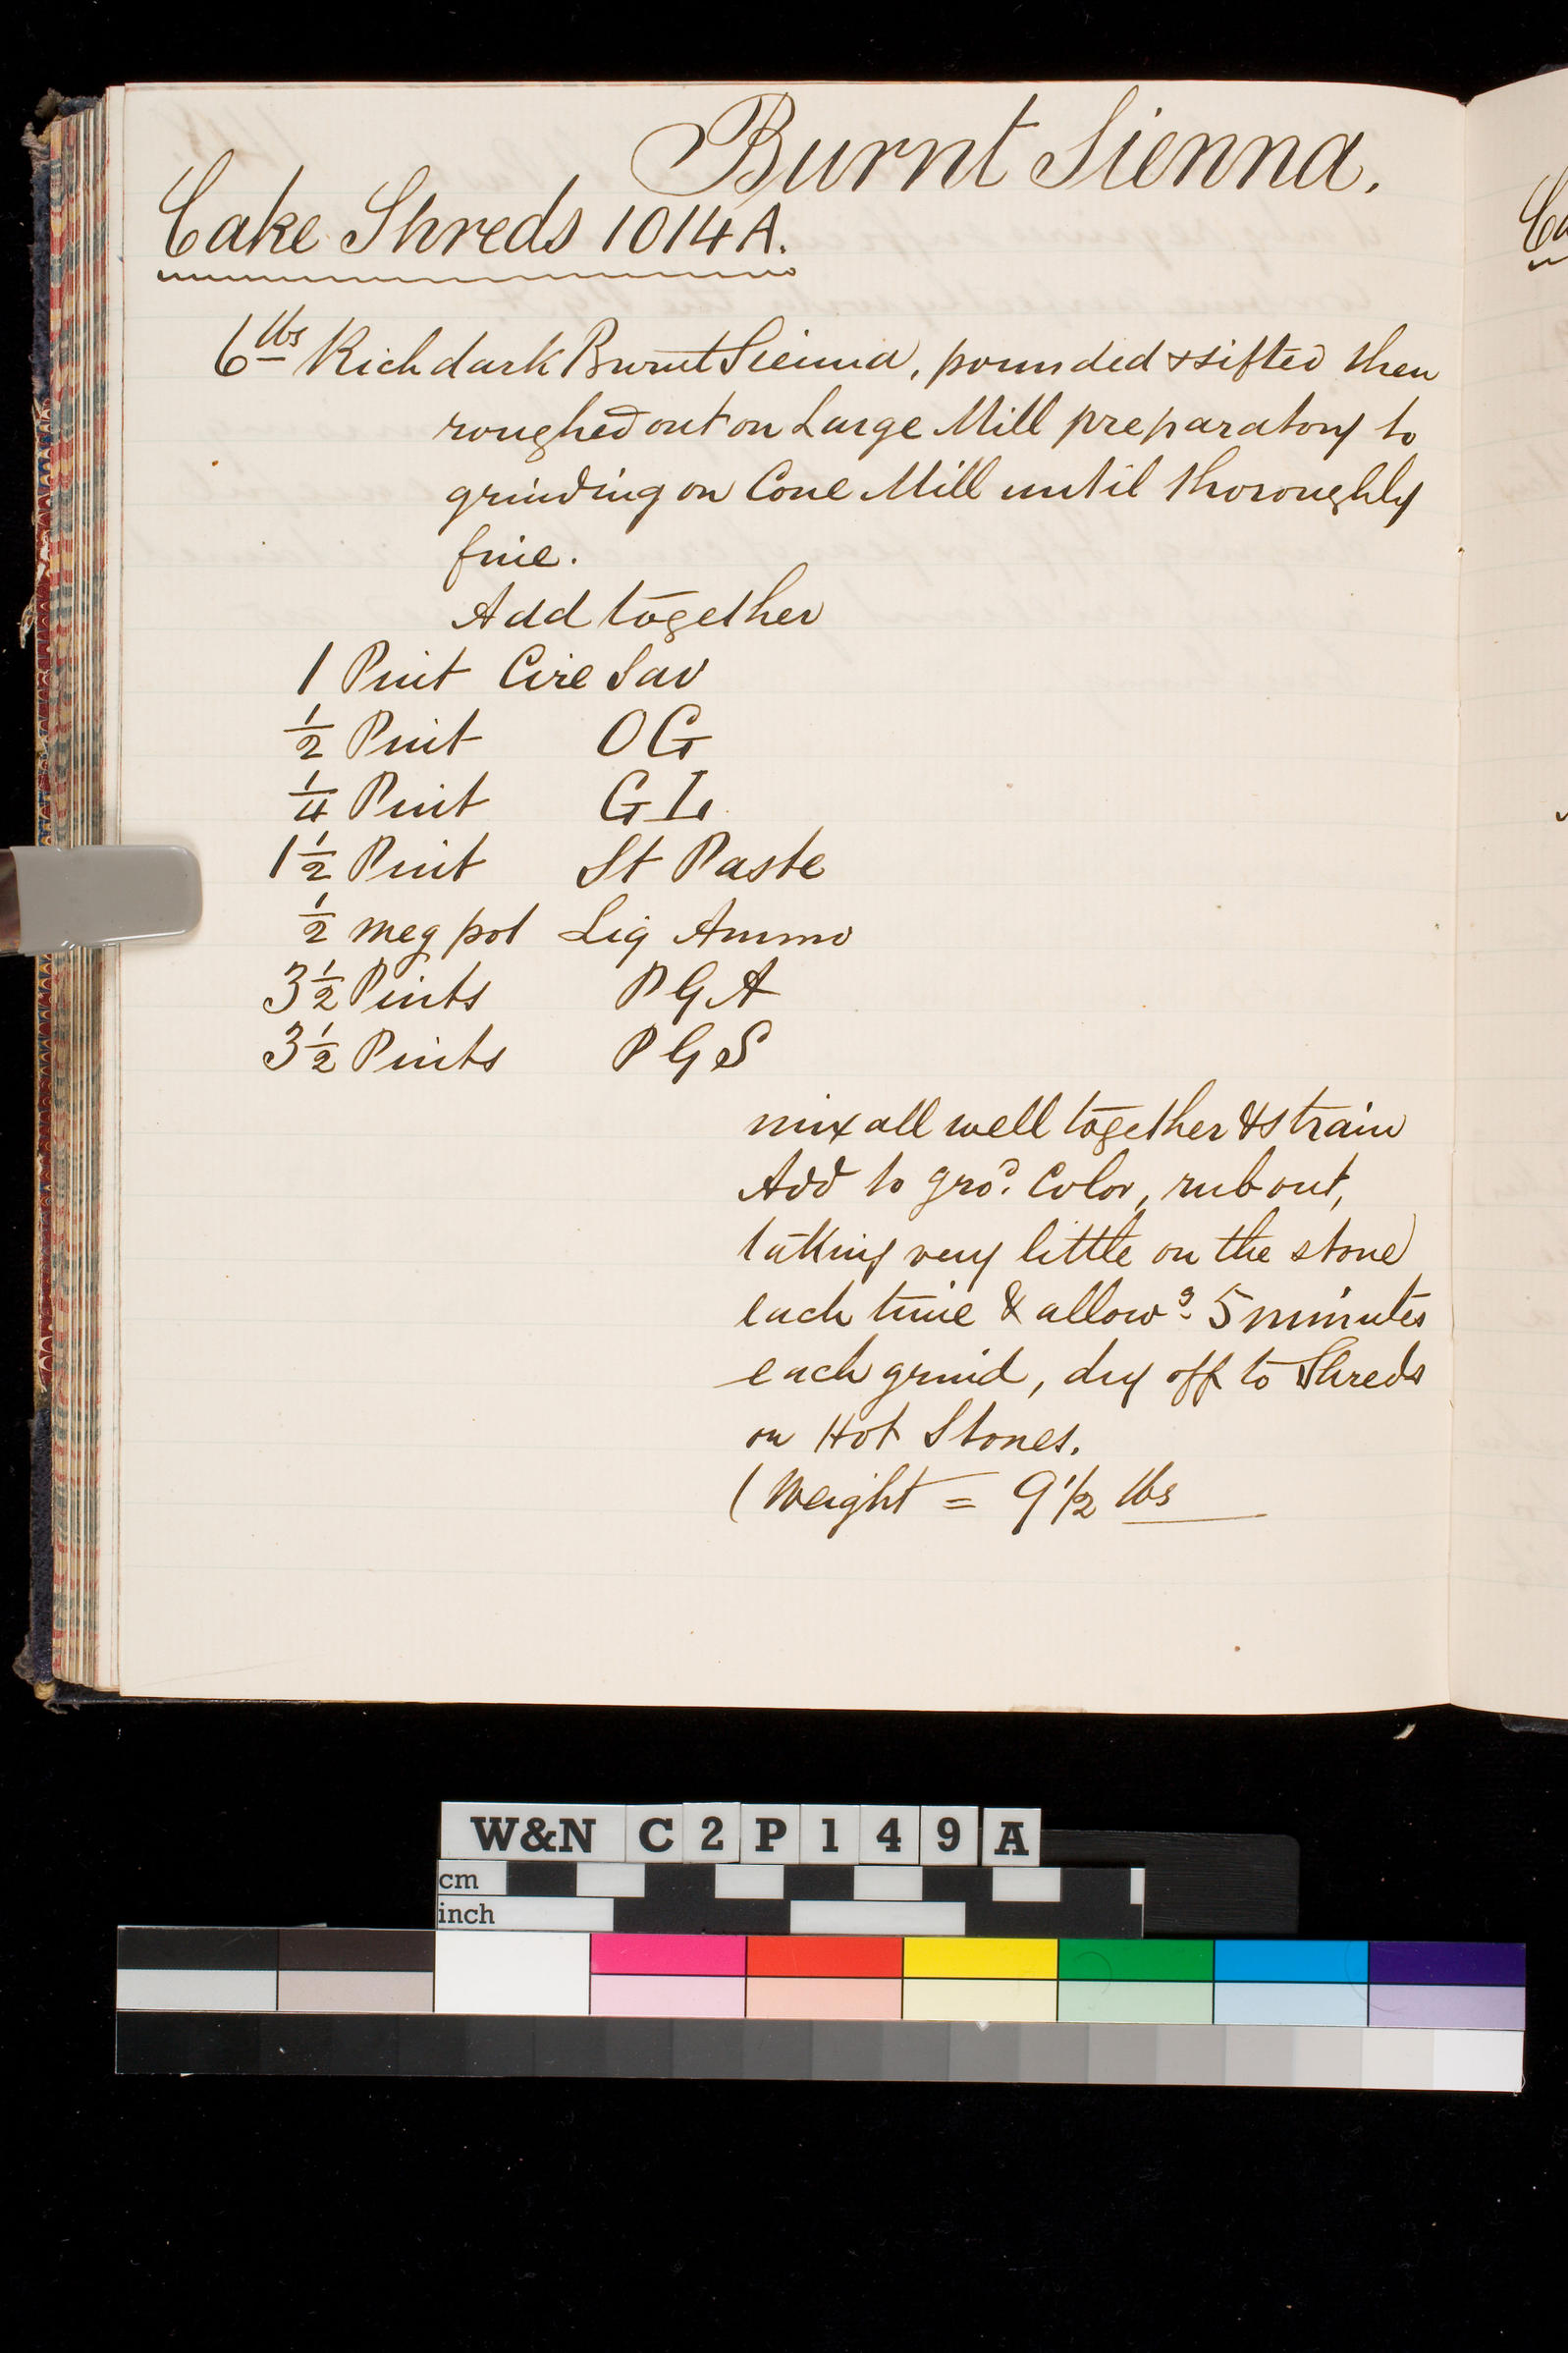 Burnt Sienna.
Cake Shreds 1014A.
6 lbs Rich dark Burnt Sienna, pounded & sifted then
roughed out on Large Mill preparatory to
grinding on Cone Mill until thoroughly
fine.
Add together
1 Pint Cire Sav
½ Pint OG
¼ Pint GL
1½ Pint St Paste
½ meg pot Liq Ammo
3½ Pints PGA
3½ Pints PGS
mix all well together & strain
Add to groᵈ. Color, rub out,
taking very little on the stone
each time & allowᵍ 5 minutes
each grind, dry off to Shreds
on Hot Stones.
(Weight = 9 1/2 lbs
W&N C2P149A
cm
inch